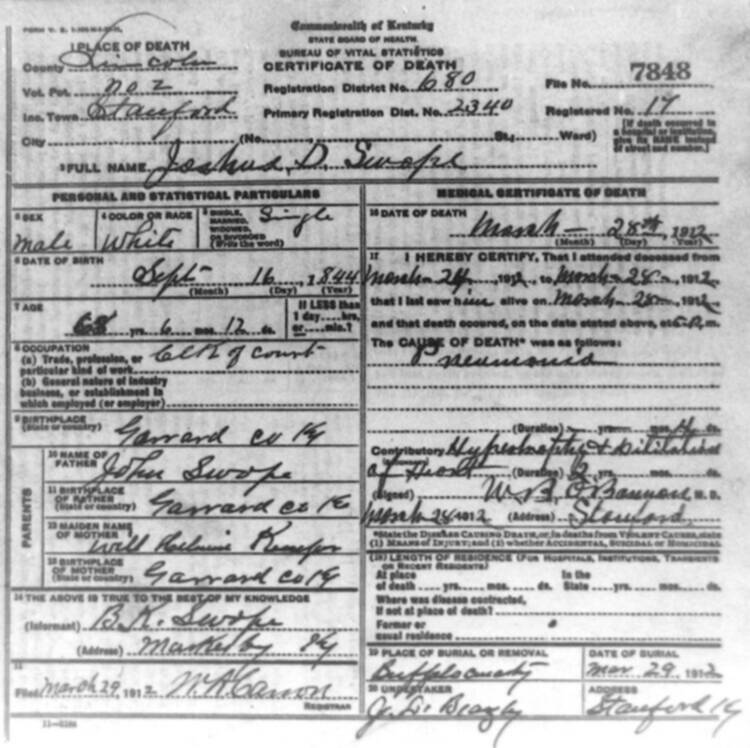 Commonwealth of Kentucky
STATE BOARD OF HEALTH.
BUREAU OF VITAL STATISTICS
CERTIFICATE OF DEATH
1 PLACE OF DEATH
County Lincoln
Vot. Pct. No 2
Inc. Town Stanford
City
(No. St.; Ward)
Registration District No. 680
Primary Registration Dist. No. 2340
File No. 7848
Registered No. 17
[If death occurred in a hospital or institution, give its NAME instead of street and number.]
2 FULL NAME Joshua D. Swope
PERSONAL AND STATISTICAL PARTICULARS
3 SEX
Male
4 COLOR OR RACE
White
5 SINGLE, MARRIED, WIDOWED, OR DIVORCED (Write the word)
Single
6 DATE OF BIRTH
Sept 16, 1844
(Month) (Day) (Year)
7 AGE
yrs. 6 mos. 12 ds.
If LESS than 1 day....hrs. or....min.?
8 OCCUPATION
(a) Trade, profession, or particular kind of work Clk of court
(b) General nature of industry business, or establishment in which employed (or employer)
9 BIRTHPLACE
(State or country) Garrard co Ky
PARENTS
10 NAME OF FATHER John Swope
11 BIRTHPLACE OF FATHER
(State or country) Garrard co Ky
12 MAIDEN NAME OF MOTHER
13 BIRTHPLACE OF MOTHER
(State or country) Garrard co Ky
14 THE ABOVE IS TRUE TO THE BEST OF MY KNOWLEDGE
(Informant) B. K. Swope
(Address) Ky
15
Filed March 29, 1912 W. A. Carson
REGISTRAR
MEDICAL CERTIFICATE OF DEATH
16 DATE OF DEATH
March 28th, 1912
(Month) (Day) (Year)
17 I HEREBY CERTIFY, That I attended deceased from
March 24, 1912, to March 28, 1912
that I last saw him alive on March 28, 1912
and that death occured, on the date stated above, at m.
The CAUSE OF DEATH* was as follows:
Pneumonia
(Duration) yrs. mos. 4 ds.
Contributory Hypertrophy &
of Heart (Duration) yrs. mos. ds.
(Signed) W. B. M. D.
March 28 1912 (Address) Stanford
*State the DISEASE CAUSING DEATH, or, in deaths from VIOLENT CAUSES, state (1) MEANS OF INJURY; and (2) whether ACCIDENTAL, SUICIDAL or HOMICIDAL
18 LENGTH OF RESIDENCE (FOR HOSPITALS, INSTITUTIONS, TRANSIENTS OR RECENT RESIDENTS)
At place of death yrs. mos. ds.
In the State yrs. mos. ds.
Where was disease contracted,
If not at place of death?
Former or usual residence
19 PLACE OF BURIAL OR REMOVAL
DATE OF BURIAL
Mar 29, 1912
20 UNDERTAKER
ADDRESS
Stanford Ky